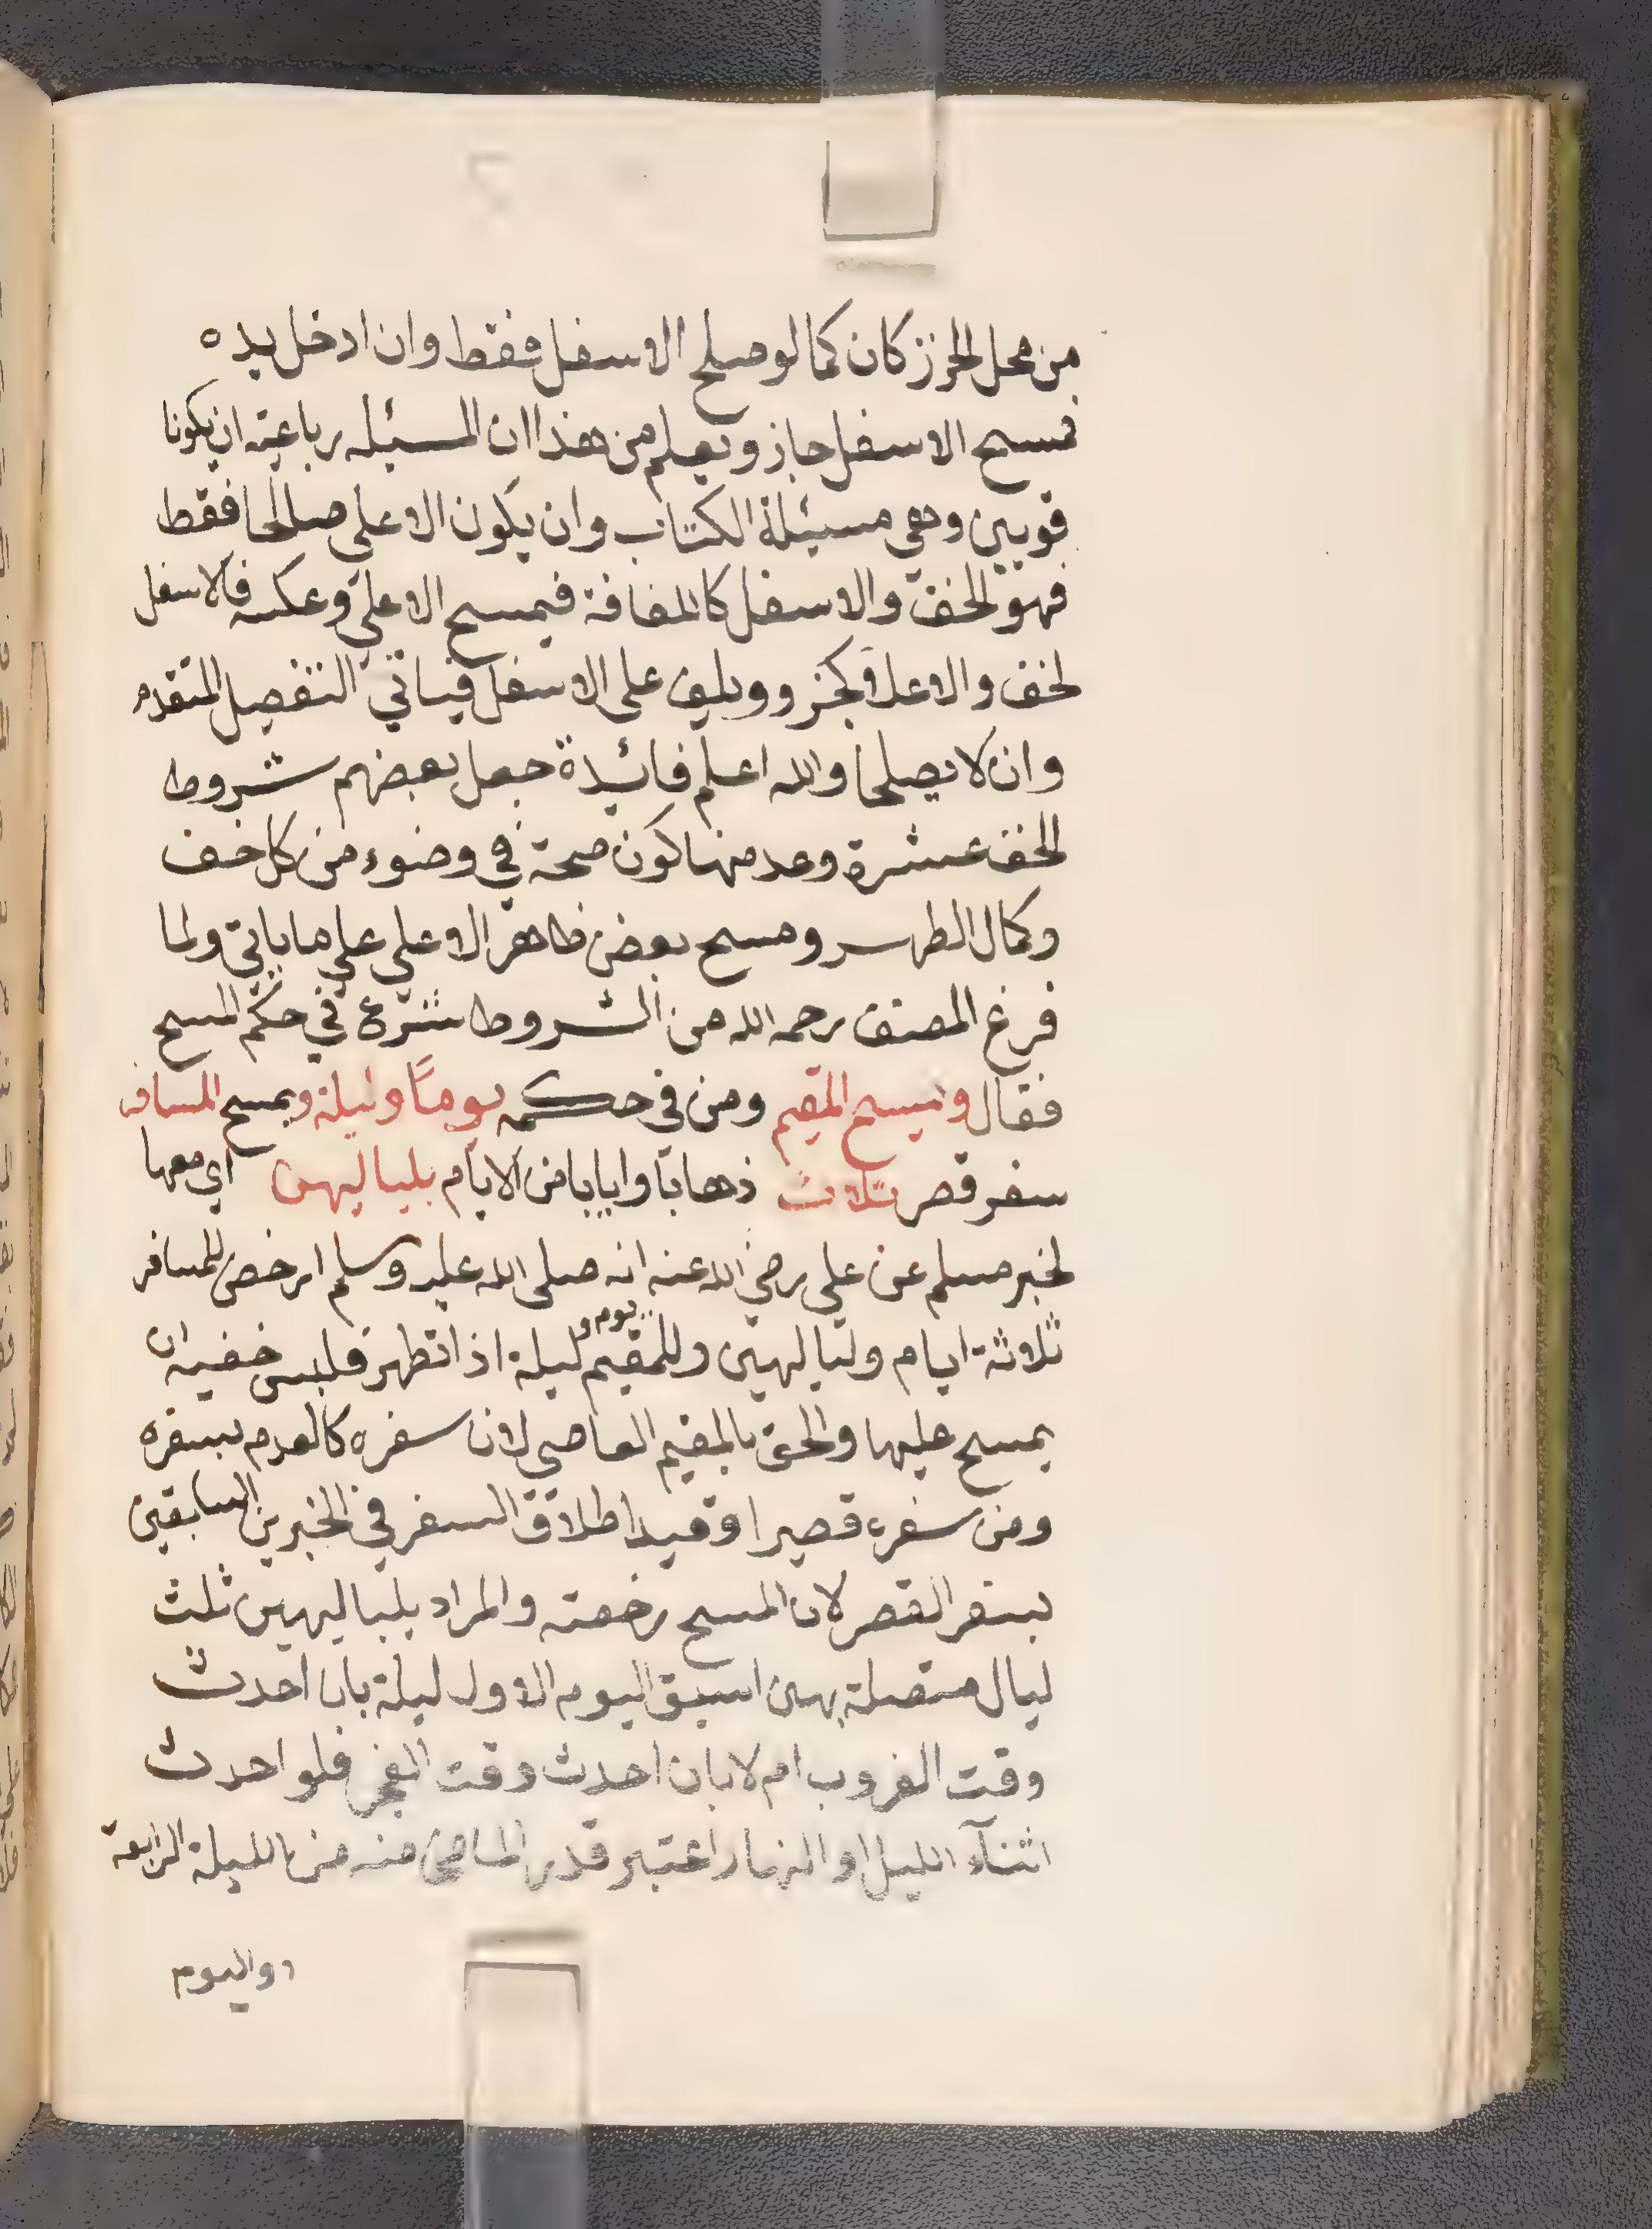 من محل الخرز كان كما لو صلح الاسفل فقط وان ادخل يده
فمسح الاسفل جاز ويعلم من هذا ان المسئله رباعيته ان يكونا
قويين وهي مسئلة الكتاب وان يكون الاعلى صالحا فقط
فهو الخف والاسفل كاللفافة فيمسح الاعلى وعكسه فالاسفل
لخف والاعلا على الاسفل فياتي التفصيل المتقدم
وان لا يصلحا والله اعلم فائدة جعل بعضهم شروط
الخف عشرة وعد منها كون صحة في وضوء من كل خف
وكمال الطهر ومسح بعض ظاهر الاعلى على ما ياتي ولما
فرغ المصنف رحمه الله من الشروط شرع في حكم المسح
فقال ويمسح المقيم ومن في حكمه يومًا وليلة ويمسح المسافر
سفر قصر ثلاث ذهابا وايابا من الايام بلياليهن اي معها
لخبر مسلم عن علي رضي الله عنه انه صلى الله عليه وسلم ارخص للمسافر
ثلاثة ايام ولياليهن وللمقيم يوم وليلة اذا تطهر فلبس خفيه ان
يمسح عليها والحق بالمقيم العاصي لان سفره كالعدم بسفره
ومن سفره قصير اوقيد اطلاق السفر في الخبرين السابقين
بسفر القصر لان المسح رخصته والمراد بلياليهن ثلث
ليال متصلة بهن اسبق اليوم الاول ليلة بان احدث
وقت الغروب ام لا بان احدث وقت الفجر فلو احدث
اثنآء الليل او النهار اعتبر قدر الماضي منه من الليلة الرابعة
او اليوم